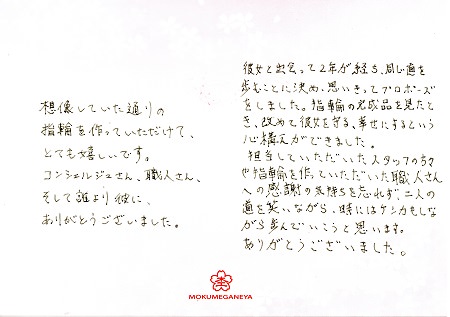 想像していた通りの
指輪を作っていただけて、
とても嬉しいです。
コンシェルジュさん、職人さん、
そして誰より彼に、
ありがとうございました。
彼女と出会って2年が経ち、同じ道を
歩むことに決め、思いきってプロポーズ
をしました。指輪の完成品を見たと
き、改めて彼女を守る、幸せにするという
心構えができました。
担当していただいたスタッフの方々
や指輪を作っていただいた職人さん
への感謝の気持ちを忘れず、二人の
道を笑いながら、時にはケンカもしな
がら歩んでいこうと思います。
ありがとうございました。
MOKUMEGANEYA